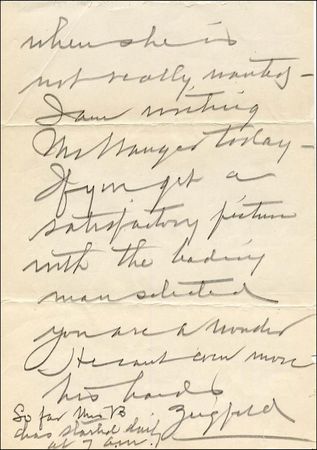 when she is
not really wanted –
I am writing
Mr Wanger today –
If you get a
satisfactory picture
with the leading
man selected
you are a wonder
He cant even move
his hands
Ziegfeld
So far Mrs B
has started daily
at 7 a.m.